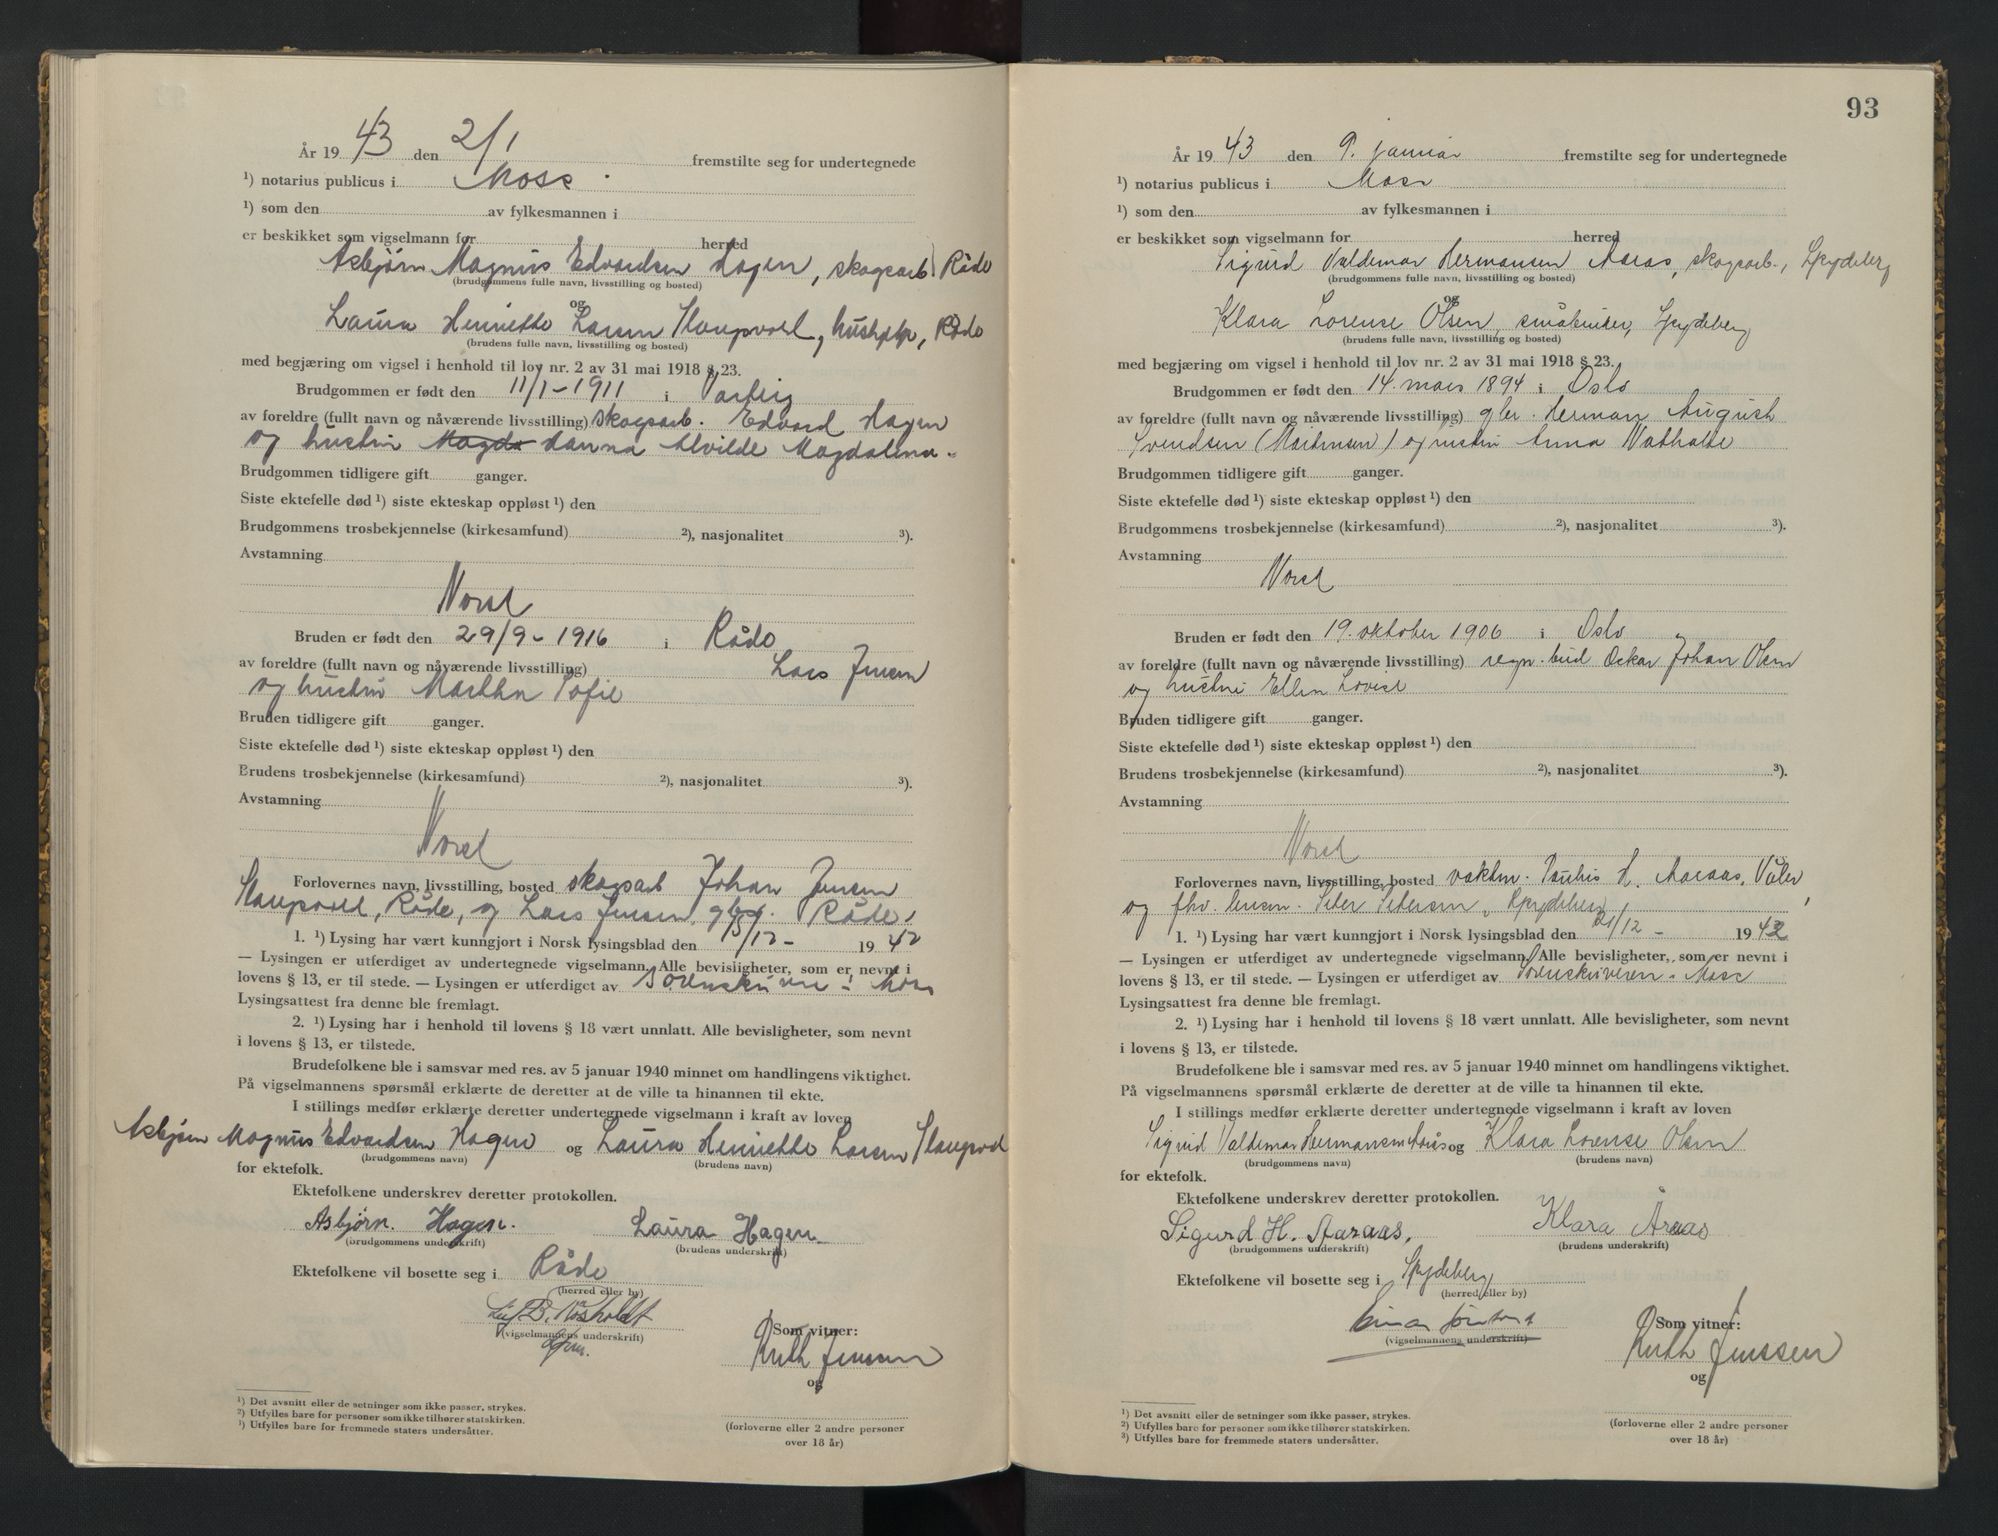 År 19 43 den 2/1 fremstilte seg for undertegnede
¹) notarius publicus i Moss.
¹) som den av fylkesmannen i
er beskikket som vigselmann for herred
Asbjørn Magnus Edvardsen Hagen, skogsarb. Råde
(brudgommens fulle navn, livsstilling og bosted)
og
Laura Henriette Larsen Slangsvoll, hushjelp, Råde
(brudens fulle navn, livsstilling og bosted)
med begjæring om vigsel i henhold til lov nr. 2 av 31 mai 1918 § 23.
Brudgommen er født den 11/1-1911 i Varteig
av foreldre (fullt navn og nåværende livsstilling) skogsarb. Edvard Hagen
og hustru Hanna Alvilde Magdalena.
Brudgommen tidligere gift ganger.
Siste ektefelle død ¹) siste ekteskap oppløst ¹) den
Brudgommens trosbekjennelse (kirkesamfund) ²), nasjonalitet ³).
Avstamning
Norsk
Bruden er født den 29/9-1916 i Råde
av foreldre (fullt navn og nåværende livsstilling) Lars Jensen
og hustru Martha Sofie
Bruden tidligere gift ganger.
Siste ektefelle død ¹) siste ekteskap oppløst ¹) den
Brudens trosbekjennelse (kirkesamfund) ²), nasjonalitet ³).
Avstamning
Norsk
Forlovernes navn, livsstilling, bosted skogsarb Johan Jensen
Råde, og Lars Jensen, Råde.
1. ¹) Lysing har vært kunngjort i Norsk lysingsblad den 15/12- 19 42
— Lysingen er utferdiget av undertegnede vigselmann. Alle bevisligheter, som er nevnt i
lovens § 13, er til stede. — Lysingen er utferdiget av Sorenskriveren i Moss
Lysingsattest fra denne ble fremlagt.
2. ¹) Lysing har i henhold til lovens § 18 vært unnlatt. Alle bevisligheter, som nevnt
i lovens § 13, er tilstede.
Brudefolkene ble i samsvar med res. av 5 januar 1940 minnet om handlingens viktighet.
På vigselmannens spørsmål erklærte de deretter at de ville ta hinannen til ekte.
I stillings medfør erklærte deretter undertegnede vigselmann i kraft av loven
Asbjørn Magnus Edvardsen Hagen og Laura Henriette Larsen
(brudgommens navn) (brudens navn)
for ektefolk.
Ektefolkene underskrev deretter protokollen.
Asbjørn. Hagen. Laura Hagen.
(brudgommens underskrift) (brudens underskrift)
Ektefolkene vil bosette seg i Råde
(herred eller by)
(vigselmannens underskrift)
Som vitner:
Ruth Jenssen
og
(forloverne eller 2 andre personer
over 18 år)
¹) Det avsnitt eller de setninger som ikke passer, strykes.
²) Utfylles bare for personer som ikke tilhører statskirken.
³) Utfylles bare for fremmede staters undersåtter.
93
År 19 43 den 9. januar fremstilte seg for undertegnede
¹) notarius publicus i Moss
¹) som den av fylkesmannen i
er beskikket som vigselmann for herred
Sigurd Valdemar Hermansen Aaraas, skogsarb., Spydeberg
(brudgommens fulle navn, livsstilling og bosted)
og
Klara Lorense Olsen, småbruker, Spydeberg
(brudens fulle navn, livsstilling og bosted)
med begjæring om vigsel i henhold til lov nr. 2 av 31 mai 1918 § 23.
Brudgommen er født den 14. mars 1894 i Oslo
av foreldre (fullt navn og nåværende livsstilling) gbr. Herman August
Svendsen (Mortensen) og hustru Anna Nathalie
Brudgommen tidligere gift ganger.
Siste ektefelle død ¹) siste ekteskap oppløst ¹) den
Brudgommens trosbekjennelse (kirkesamfund) ²), nasjonalitet ³).
Avstamning
Norsk
Bruden er født den 19. oktober 1906 i Oslo
av foreldre (fullt navn og nåværende livsstilling) regn. bud Oskar Johan Olsen
og hustru Ellen Lovise
Bruden tidligere gift ganger.
Siste ektefelle død ¹) siste ekteskap oppløst ¹) den
Brudens trosbekjennelse (kirkesamfund) ²), nasjonalitet ³).
Avstamning
Norsk
Forlovernes navn, livsstilling, bosted vaktm. H. Aaraas, Våler
og fhv. Peter Pedersen, Spydeberg
1. ¹) Lysing har vært kunngjort i Norsk lysingsblad den 21/12 - 19 42
— Lysingen er utferdiget av undertegnede vigselmann. Alle bevisligheter, som er nevnt i
lovens § 13, er til stede. — Lysingen er utferdiget av Sorenskriveren i Moss
Lysingsattest fra denne ble fremlagt.
2. ¹) Lysing har i henhold til lovens § 18 vært unnlatt. Alle bevisligheter, som nevnt
i lovens § 13, er tilstede.
Brudefolkene ble i samsvar med res. av 5 januar 1940 minnet om handlingens viktighet.
På vigselmannens spørsmål erklærte de deretter at de ville ta hinannen til ekte.
I stillings medfør erklærte deretter undertegnede vigselmann i kraft av loven
Sigurd Valdemar Hermansen Aarås og Klara Lorense Olsen
(brudgommens navn) (brudens navn)
for ektefolk.
Ektefolkene underskrev deretter protokollen.
Sigurd H. Aaraas. Klara Åraas
(brudgommens underskrift) (brudens underskrift)
Ektefolkene vil bosette seg i Spydeberg
(herred eller by)
(vigselmannens underskrift)
Som vitner:
Ruth Jenssen
og
(forloverne eller 2 andre personer
over 18 år)
¹) Det avsnitt eller de setninger som ikke passer, strykes.
²) Utfylles bare for personer som ikke tilhører statskirken.
³) Utfylles bare for fremmede staters undersåtter.